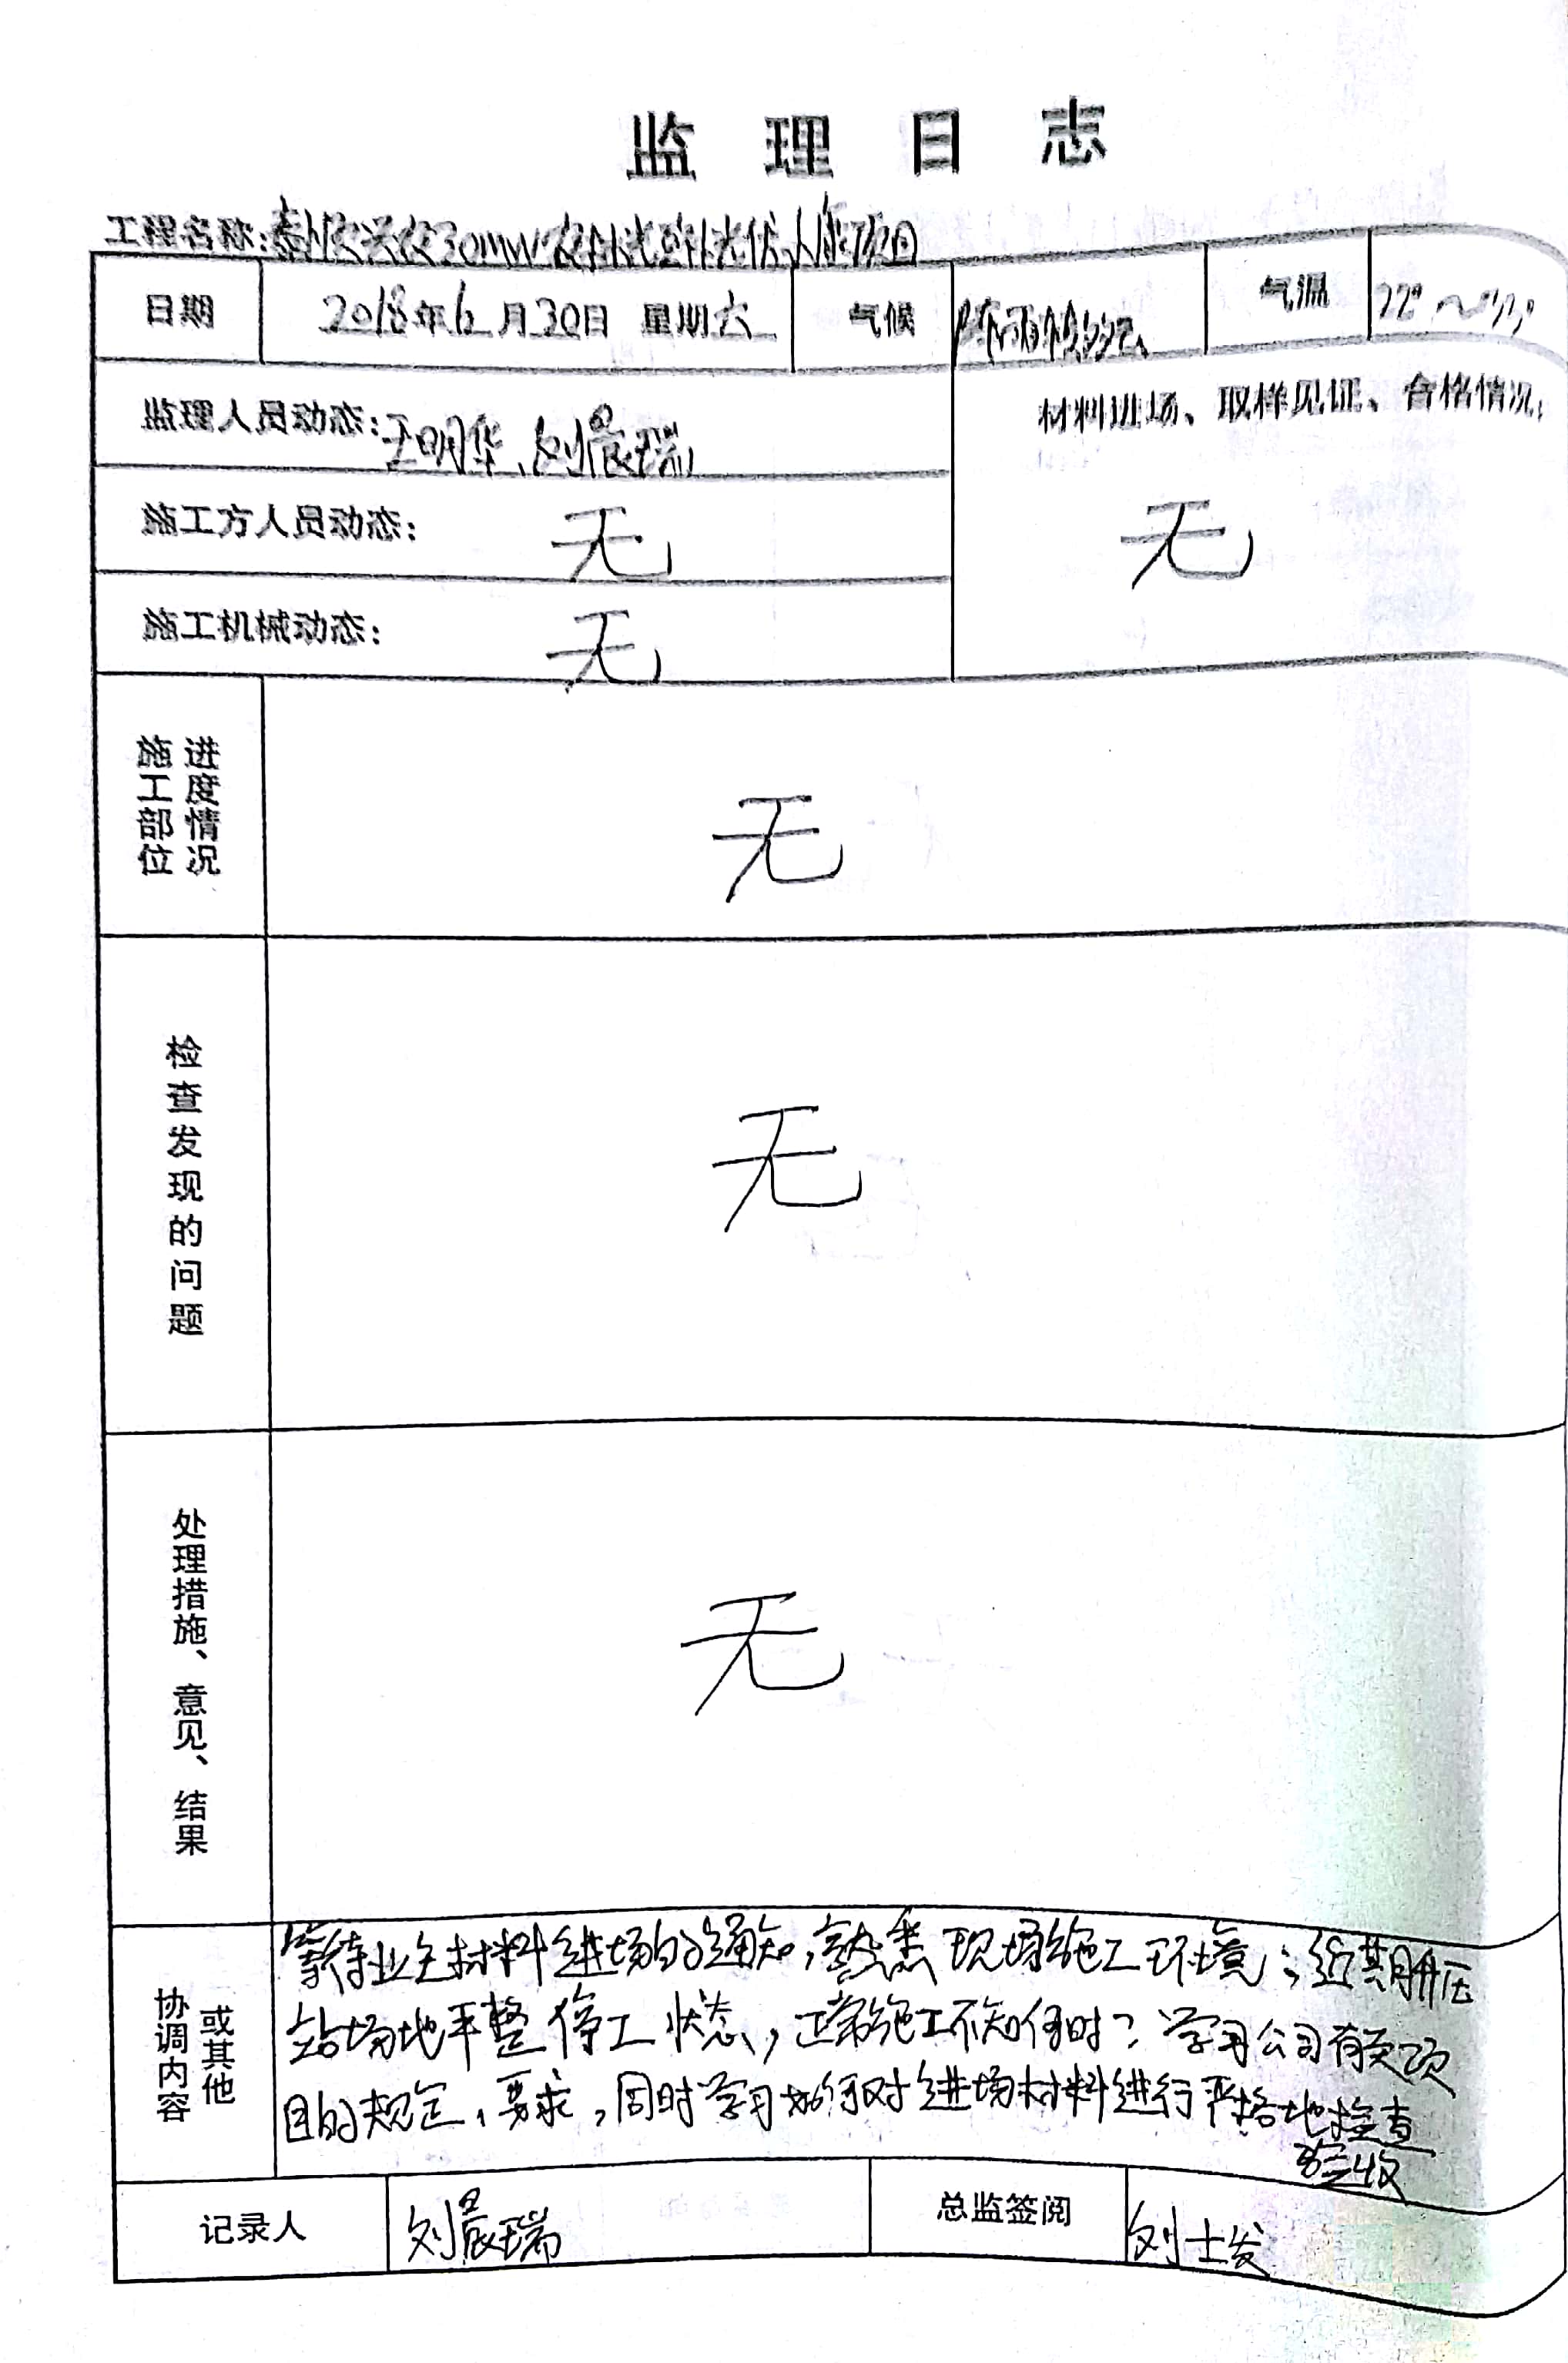 监理日志
工程名称:泰 30MW 项目
日期 2018年6月30日 星期六 气候 阵雨 多云 气温 22°~33°
监理人员动态:王明华、刘晨瑞 材料进场、取样见证、合格情况:
施工方人员动态: 无 无
施工机械动态: 无
施工部位 进度情况 无
检查发现的问题 无
处理措施、意见、结果 无
协调内容 或其他
等待业主材料进场的通知,熟悉现场施工环境;近期升压
站场地平整停工状态,正常施工不知何时?学习公司有关项
目的规定、要求,同时学习如何对进场材料进行严格地检查
验收
记录人 刘晨瑞 总监签阅 刘士发